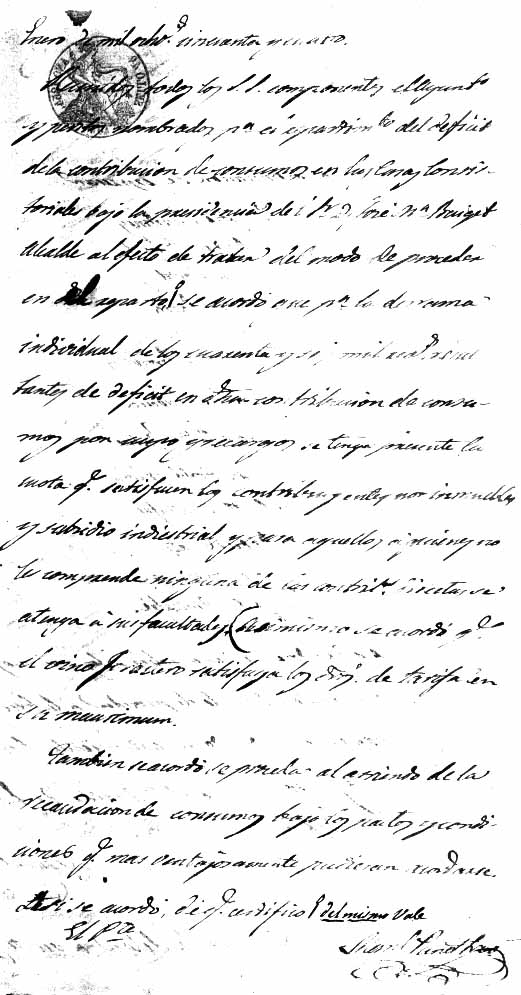 Enero de mil ocho.s cincuenta y cuatro.
Reunidos todos los S.S. componentes el Ayunt.o
y peritos nombrados p.a el repartim.to del deficit
de la contribucion de consumos en las Casas Consis-
toriales bajo la presidencia del Sr. D. José M.a Puiget
Alcalde al efecto de tratar del modo de proceder
en reparto se acordó que p.a la derrama
individual de los cuarenta y mil rea.s resul
tantes de deficit en dha contribucion de consu-
mos por cupo y recargos se tenga presente la
cuota q.e satisfacen los contribuyentes por inmuebles
y subsidio industrial y para aquellos a quienes no
les comprende ninguna de las contrib.s directas se
atenga á sus facultades. Asimismo se acordó q.e
el vino forastero satisfaga los dros. de tarifa en
su maximum.
Tambien se acordó se proceda al arriendo de la
recaudacion de consumos bajo los pactos y condi-
ciones q.e mas ventajosamente pudiesen acordarse
Asi se acordó, de q.e certifico del mismo Vale
El P.te